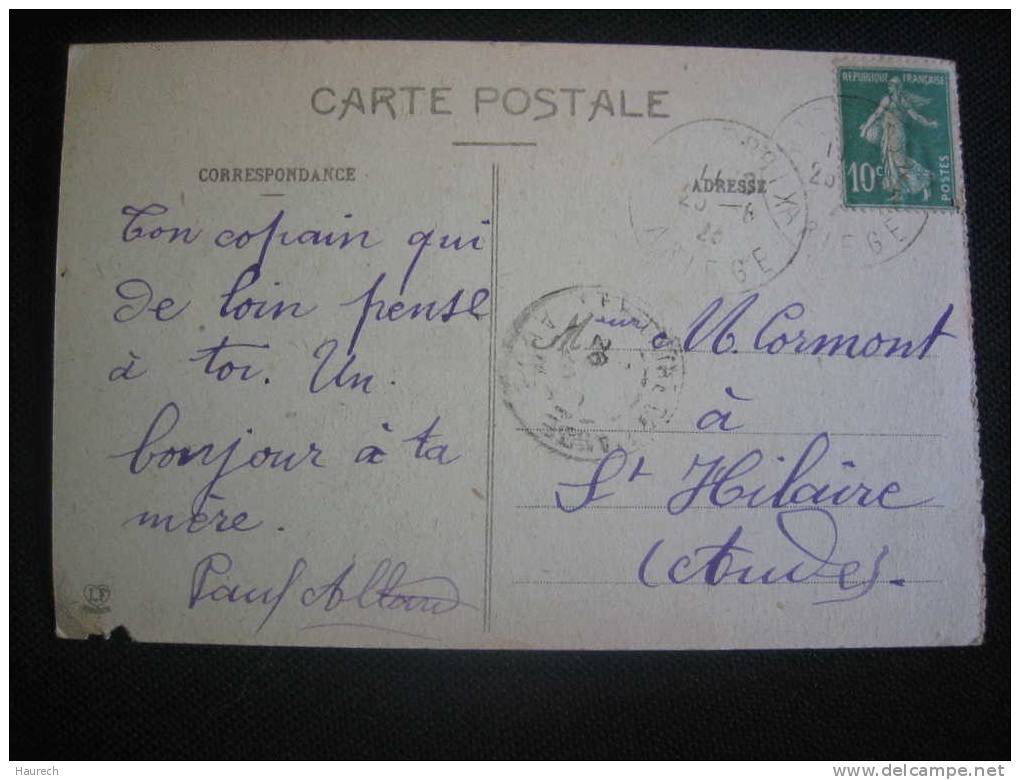 CARTE POSTALE
CORRESPONDANCE
Ton copain qui
de loin pense
à toi. Un
bonjour à ta
mère.
Paul
LF
ADRESSE
RÉPUBLIQUE FRANÇAISE
10c
POSTES
ARIEGE
ARIEGE
Mr M. Cormont
à
St Hilaire
(Aude).
Haurech
delcampe.net